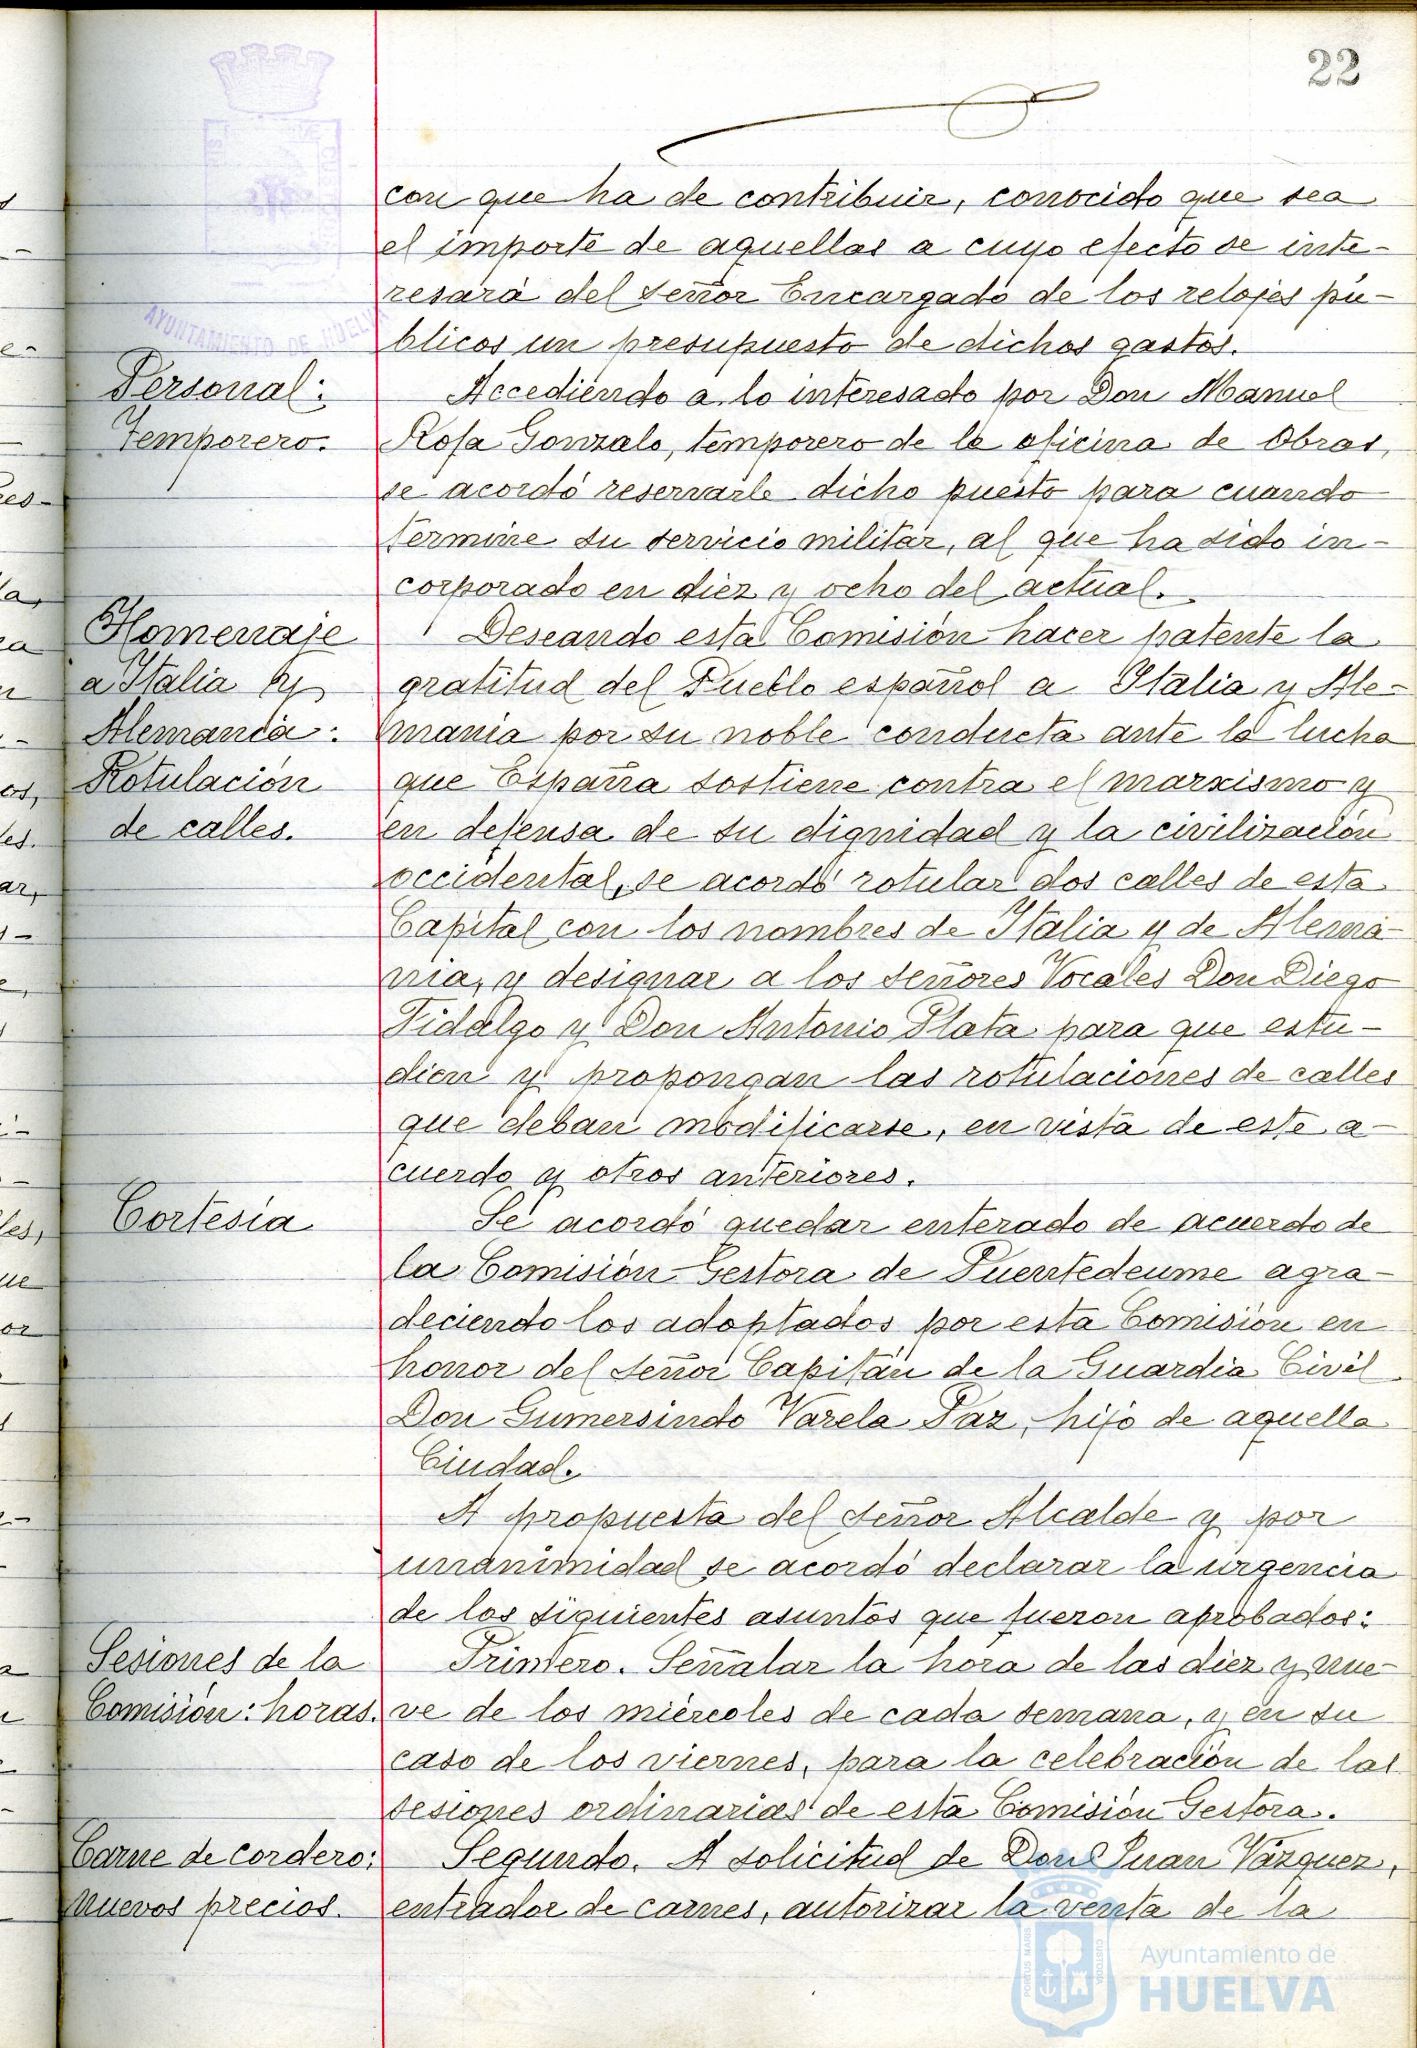 22
con que ha de contribuir, conocido que sea
el importe de aquellas a cuyo efecto se inte-
resará del señor Encargado de los relojes pú-
blicos un presupuesto de dichos gastos.
Personal:
Temporero.
Accediendo a lo interesado por Don Manuel
Rosa Gonzalo, temporero de la oficina de Obras,
se acordó reservarle dicho puesto para cuando
termine su servicio militar, al que ha sido in-
corporado en diez y ocho del actual.
Homenaje
a Italia y
Alemania:
Rotulación
de calles.
Deseando esta Comisión hacer patente la
gratitud del Pueblo español a Italia y Ale-
mania por su noble conducta ante la lucha
que España sostiene contra el marxismo y
en defensa de su dignidad y la civilización
occidental, se acordó rotular dos calles de esta
Capital con los nombres de Italia y de Alema-
nia, y designar a los señores Vocales Don Diego
Fidalgo y Don Antonio Plata para que estu-
dien y propongan las rotulaciones de calles
que deban modificarse, en vista de este a-
cuerdo y otros anteriores.
Cortesía
Se acordó quedar enterado de acuerdo de
la Comisión Gestora de Puentedeume agra-
deciendo los adoptados por esta Comisión en
honor del señor Capitán de la Guardia Civil
Don Gumersindo Varela Paz, hijo de aquella
Ciudad.
A propuesta del señor Alcalde y por
unanimidad se acordó declarar la urgencia
de los siguientes asuntos que fueron aprobados:
Sesiones de la
Comisión: horas.
Primero. Señalar la hora de las diez y nue-
ve de los miércoles de cada semana, y en su
caso de los viernes, para la celebración de las
sesiones ordinarias de esta Comisión Gestora.
Carne de cordero:
nuevos precios.
Segundo. A solicitud de Don Juan Vázquez,
entrador de carnes, autorizar la venta de la
AYUNTAMIENTO DE HUELVA
PORTUS MARIS
CUSTODIA
Ayuntamiento de
HUELVA